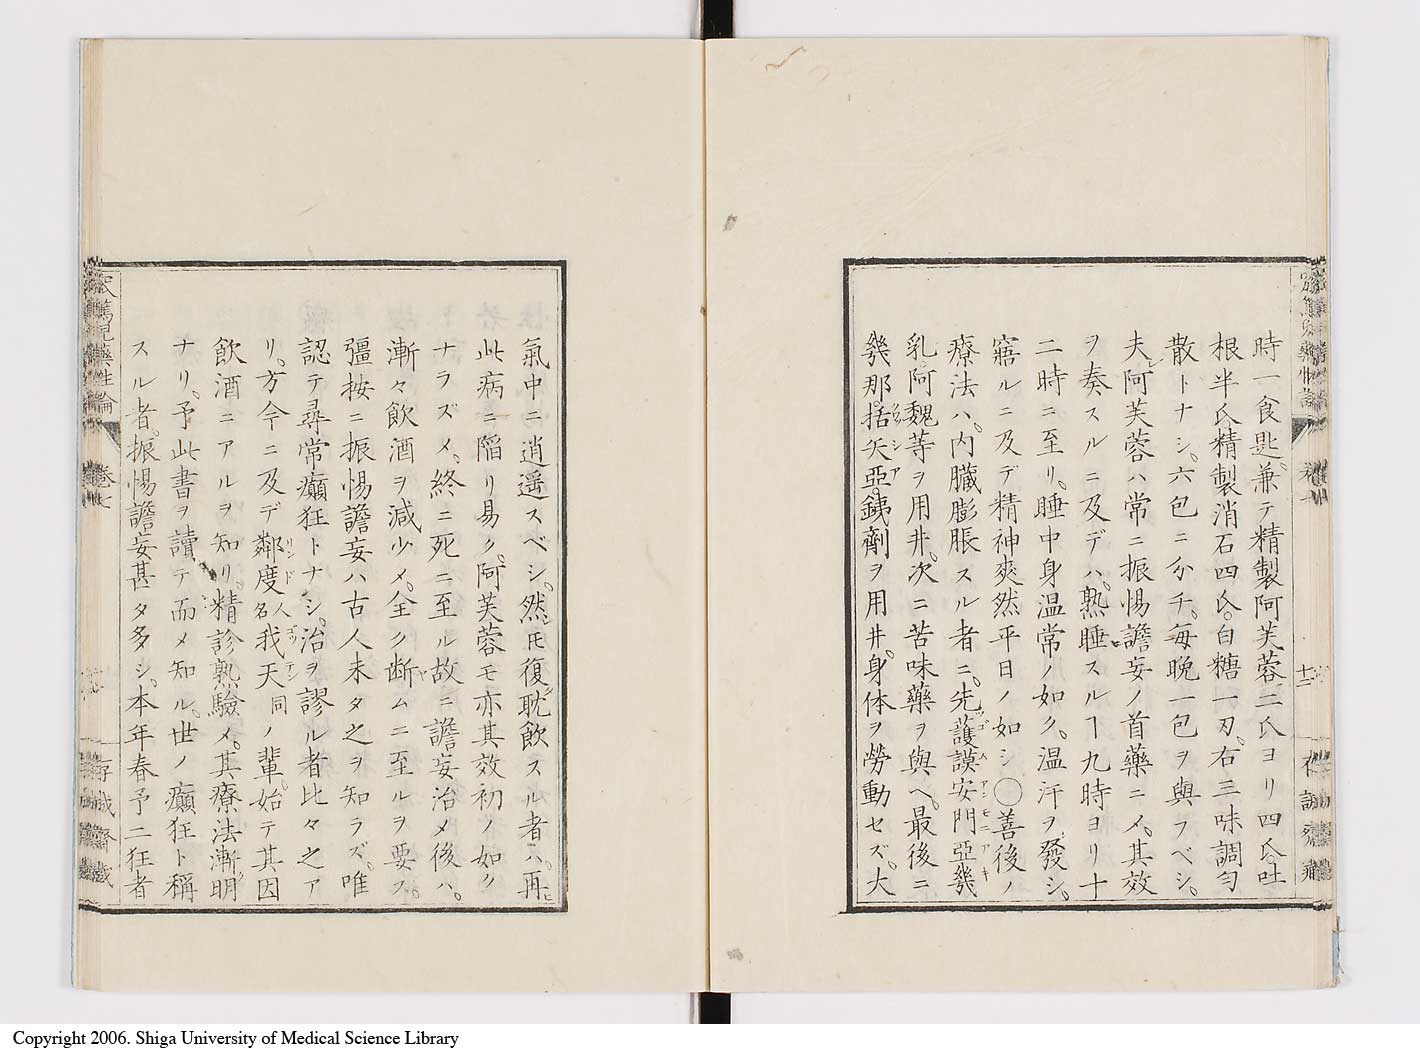 時一食匙。兼テ精製阿芙蓉二氏ヨリ四氏。吐
根半氏。精製消石四氏。白糖一刃。右三味調勻
散トナシ。六包ニ分チ。毎晩一包ヲ與フベシ。
夫レ阿芙蓉ハ常ニ振惕譫妄ノ首藥ニメ。其效
ヲ奏スルニ及デハ。熟睡スルヿ九時ヨリ十
二時ニ至リ。睡中身温常ノ如ク。温汗ヲ發シ。
寤ルニ及デ精神爽然平日ノ如シ〇善後ノ
療法ハ。内臓膨脹スル者ニ。先護謨安門亞幾
乳。阿魏等ヲ用井。次ニ苦味藥ヲ與ヘ。最後ニ
幾那。括矢亞。銕劑ヲ用井。身体ヲ勞動セズ。大
十二
氣中ニ逍遥スベシ。然シ𪜈復耽飲スル者ハ。再ヒ
此病ニ陷リ易ク。阿芙蓉モ亦其效初ノ如ク
ナラズメ。終ニ死ニ至ル故ニ譫妄治メ後ハ。
漸々飲酒ヲ減少メ。全ク断ムニ至ルヲ要ス。
彊按ニ振惕譫妄ハ古人未タ之ヲ知ラズ。唯
認テ尋常癲狂トナシ。治ヲ謬ル者比々之ア
リ。方今ニ及デ鄰度人名我天同ノ輩。始テ其因
飲酒ニアルヲ知リ。精診熟驗メ。其療法漸明
ナリ。予此書ヲ讀テ而メ知ル。世ノ癲狂ト稱
スル者。振惕譫妄甚タ多シ。本年春予二狂者
卷七
Copyright 2006. Shiga University of Medical Science Library